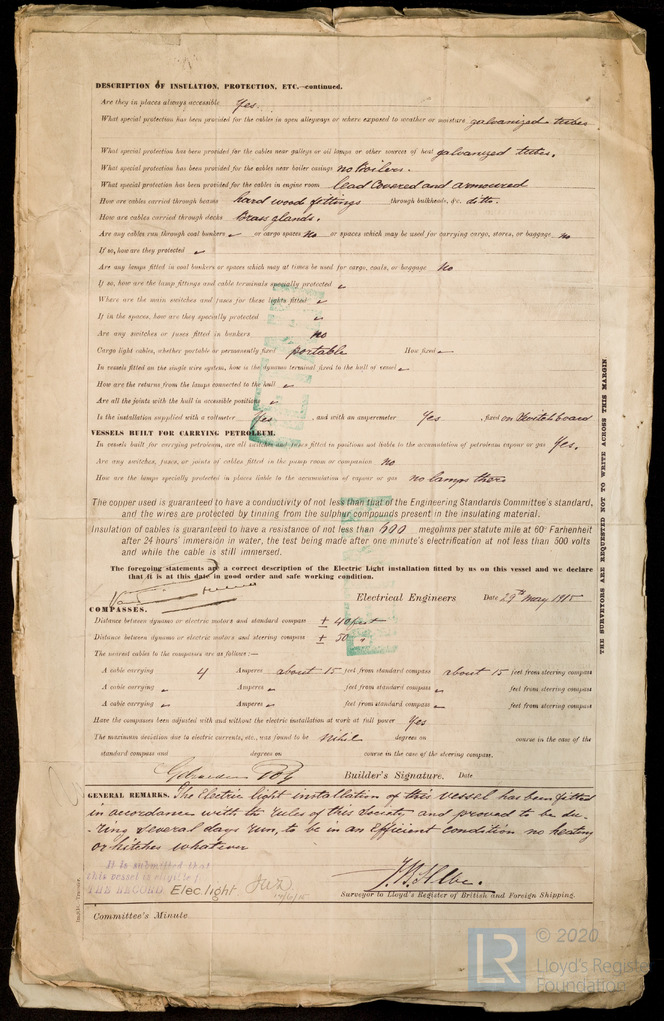 DESCRIPTION OF INSULATION, PROTECTION, ETC.—continued.
Are they in places always accessible Yes.
What special protection has been provided for the cables in open alleyways or where exposed to weather or moisture galvanized tubes
What special protection has been provided for the cables near galleys or oil lamps or other sources of heat galvanized tubes.
What special protection has been provided for the cables near boiler casings no Boilers.
What special protection has been provided for the cables in engine room lead Covered and armoured
How are cables carried through beams hard wood fittings through bulkheads, &c. ditto.
How are cables carried through decks Brass glands.
Are any cables run through coal bunkers ✓ or cargo spaces No or spaces which may be used for carrying cargo, stores, or baggage no
If so, how are they protected ✓
Are any lamps fitted in coal bunkers or spaces which may at times be used for cargo, coals, or baggage No
If so, how are the lamp fittings and cable terminals specially protected ✓
Where are the main switches and fuses for these lights fitted ✓
If in the spaces, how are they specially protected ✓
Are any switches or fuses fitted in bunkers no
Cargo light cables, whether portable or permanently fixed portable How fixed ✓
In vessels fitted on the single wire system, how is the dynamo terminal fixed to the hull of vessel ✓
How are the returns from the lamps connected to the hull ✓
Are all the joints with the hull in accessible positions ✓
Is the installation supplied with a voltmeter Yes, and with an amperemeter Yes, fixed on Switchboard
VESSELS BUILT FOR CARRYING PETROLEUM.
In vessels built for carrying petroleum, are all switches and fuses fitted in positions not liable to the accumulation of petroleum vapour or gas Yes.
Are any switches, fuses, or joints of cables fitted in the pump room or companion no
How are the lamps specially protected in places liable to the accumulation of vapour or gas no lamps there
The copper used is guaranteed to have a conductivity of not less than that of the Engineering Standards Committee's standard,
and the wires are protected by tinning from the sulphur compounds present in the insulating material.
Insulation of cables is guaranteed to have a resistance of not less than 600 megohms per statute mile at 60° Farhenheit
after 24 hours' immersion in water, the test being made after one minute's electrification at not less than 500 volts
and while the cable is still immersed.
The foregoing statements are a correct description of the Electric Light installation fitted by us on this vessel and we declare
that it is at this date in good order and safe working condition.
Electrical Engineers Date 29th May 1915
COMPASSES.
Distance between dynamo or electric motors and standard compass ± 40 feet
Distance between dynamo or electric motors and steering compass ± 50 "
The nearest cables to the compasses are as follows:—
A cable carrying 4 Amperes about 15 feet from standard compass about 15 feet from steering compass
A cable carrying ✓ Amperes ✓ feet from standard compass ✓ feet from steering compass
A cable carrying ✓ Amperes ✓ feet from standard compass ✓ feet from steering compass
Have the compasses been adjusted with and without the electric installation at work at full power Yes
The maximum deviation due to electric currents, etc., was found to be Nihil degrees on course in the case of the
standard compass and degrees on course in the case of the steering compass.
Builder's Signature. Date
GENERAL REMARKS. The Electric light installation of this vessel has been fitted
in accordance with the rules of this Society and proved to be du-
-ring several days run, to be in an Efficient condition no heating
or hitches whatever
It is submitted that
this vessel is eligible for
THE RECORD. Elec. light
Surveyor to Lloyd's Register of British and Foreign Shipping.
Committee's Minute
THE SURVEYORS ARE REQUESTED NOT TO WRITE ACROSS THIS MARGIN.
LR
© 2020
Lloyd's Register
Foundation